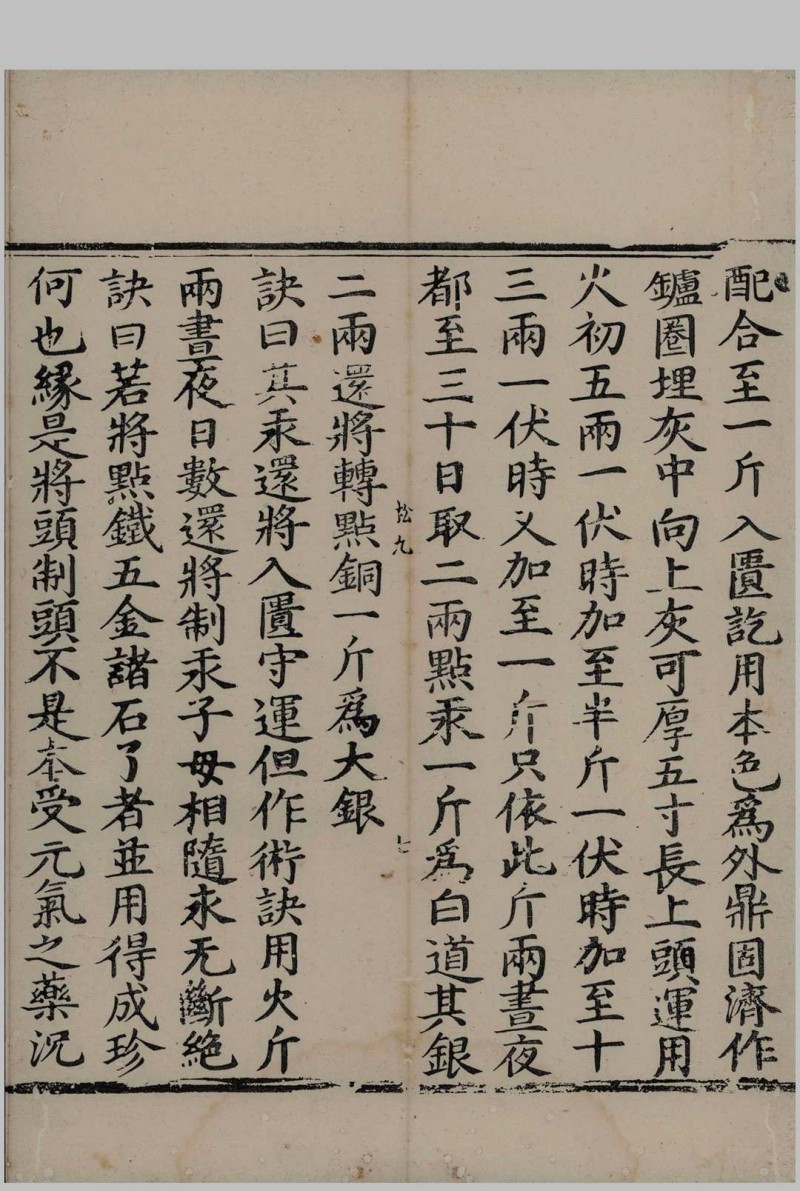 配合至一斤入匱訖用本色爲外鼎固濟作
鑪圈埋灰中向上灰可厚五寸長上頭運用
火初五兩一伏時加至半斤一伏時加至十
三兩一伏時又加至一斤只依此斤兩晝夜
都至三十日取二兩點汞一斤爲白道其銀
松九
七
二兩還將轉點銅一斤爲大銀
訣曰其汞還將入匱守運但作術訣用火斤
兩晝夜日數還將制汞子母相隨永无斷絕
訣曰若將點鐵五金諸石了者並用得成珍
何也緣是將頭制頭不是本受元氣之藥況